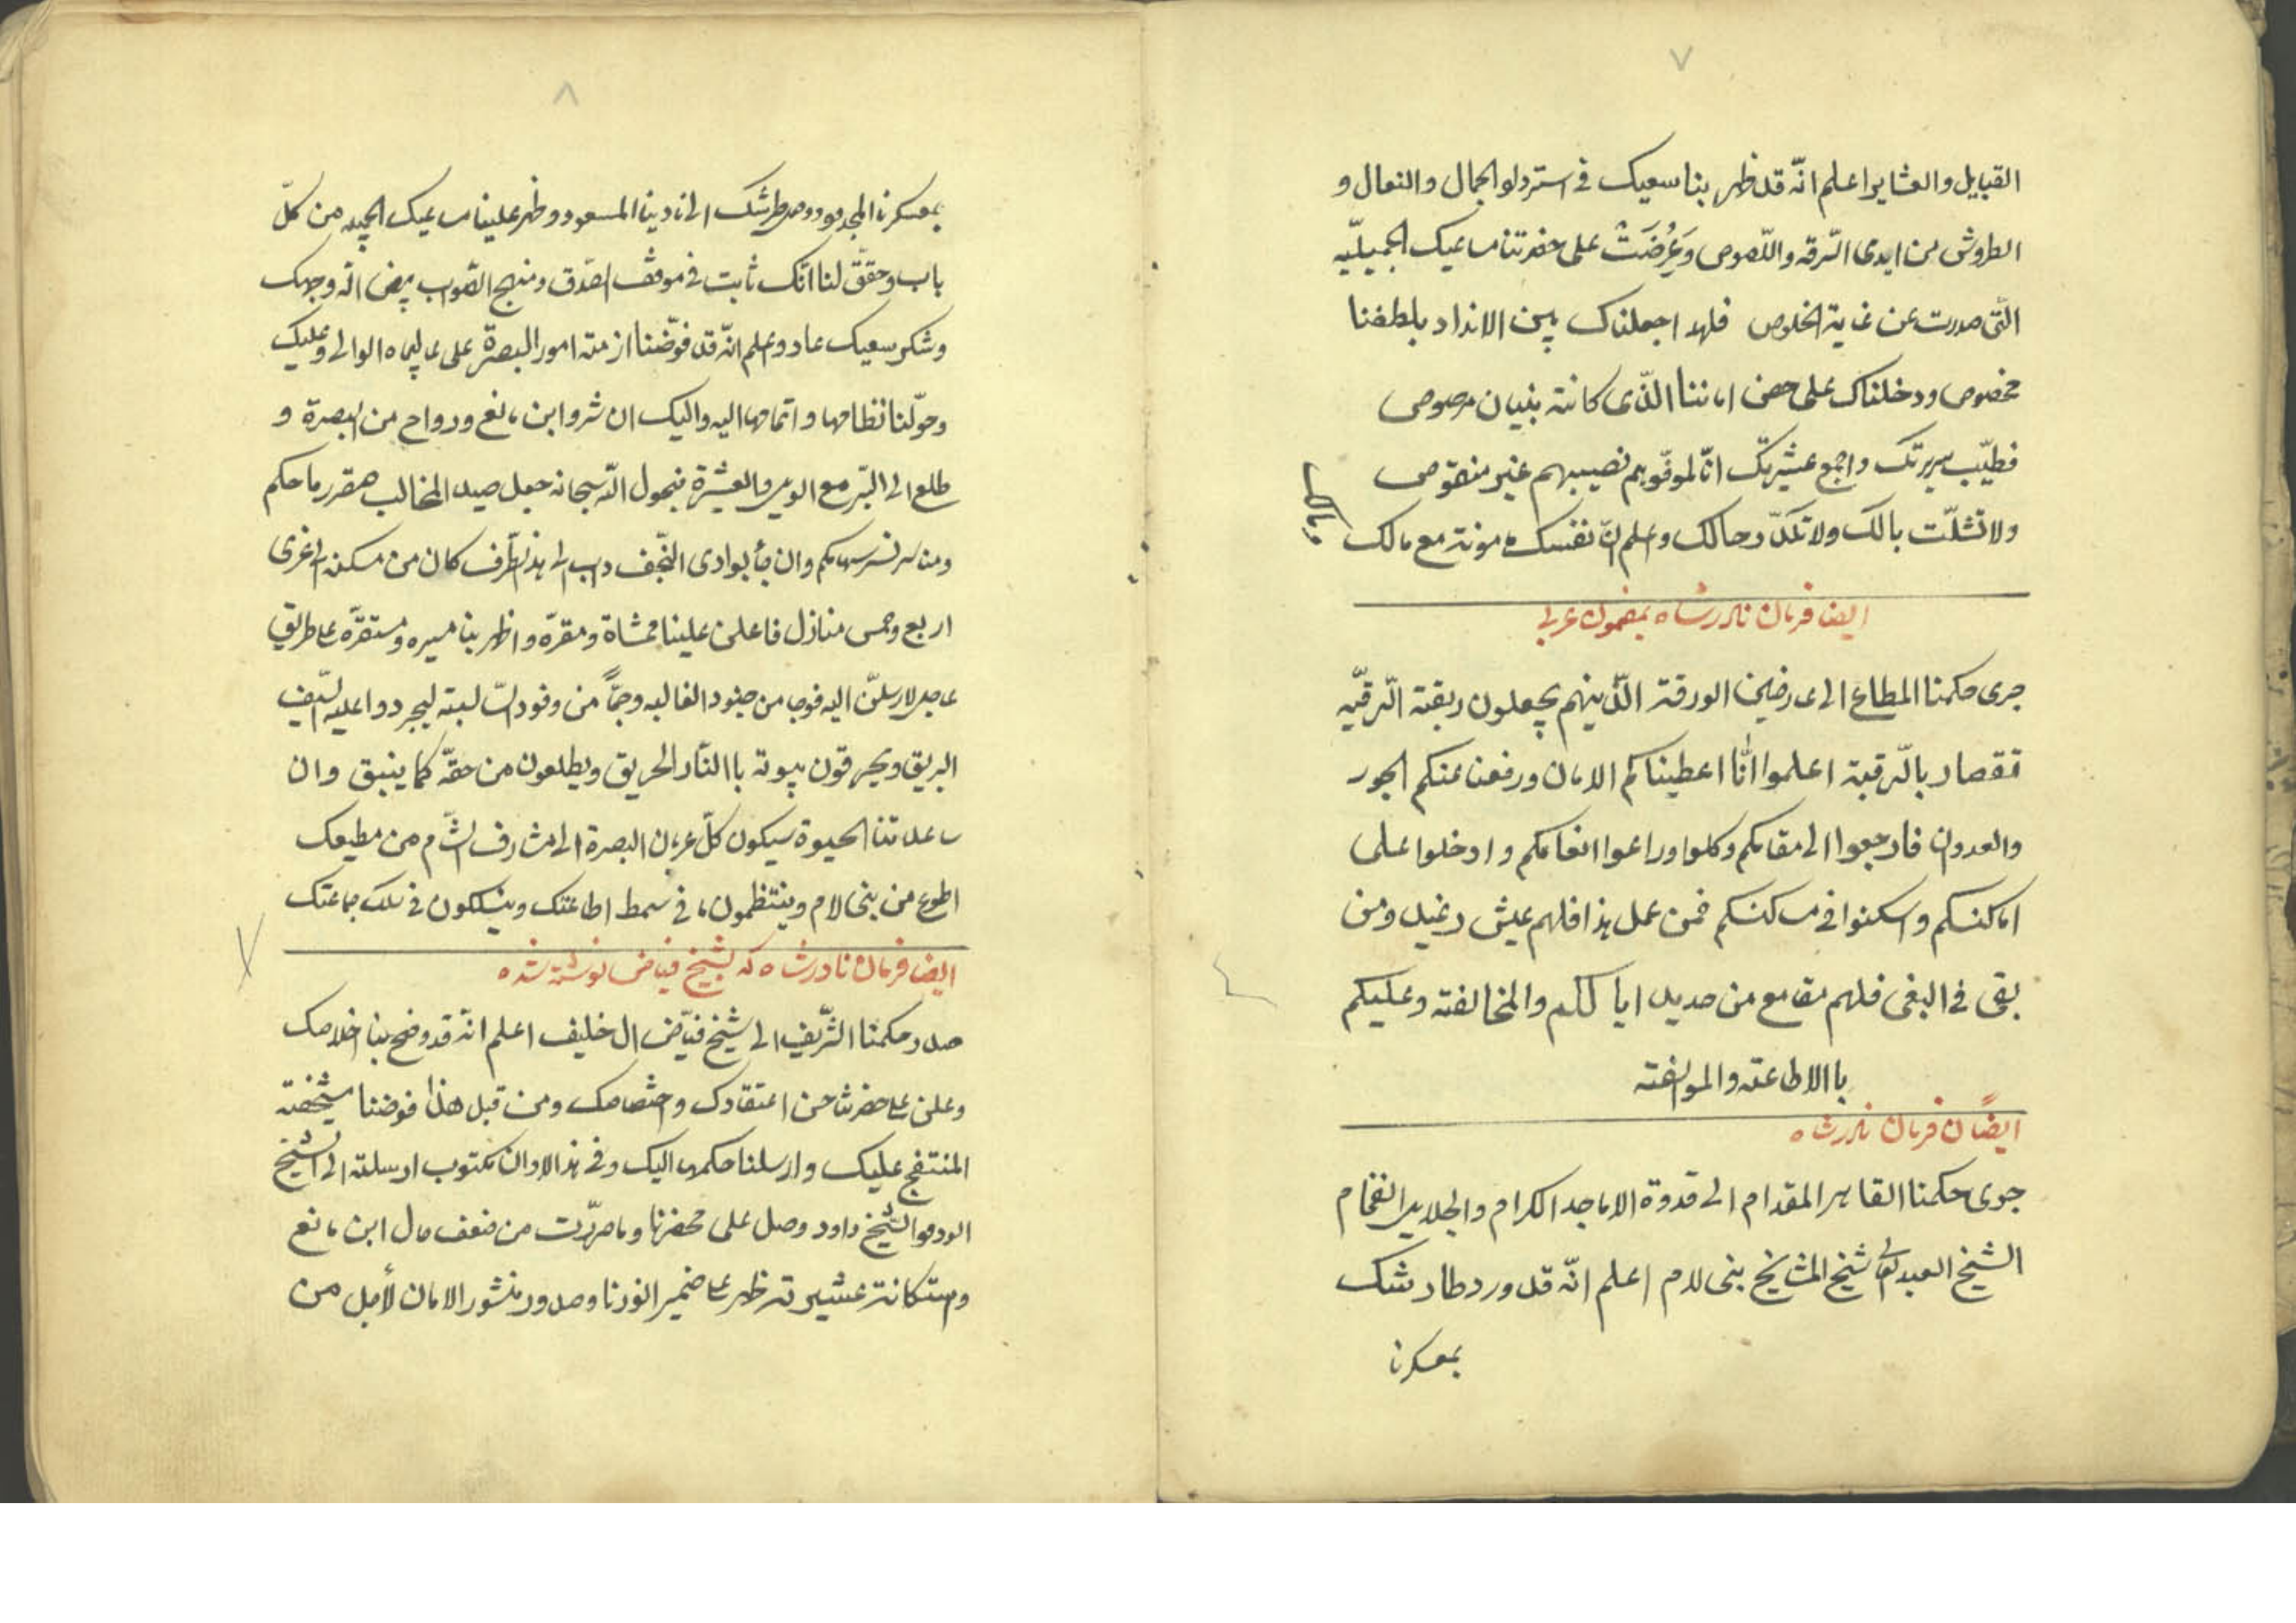 ٧
القبايل والعشاير اعلم انّه قد ظهر بنا سعيك فى استردلو الجمال والنعال و
الطروش من ايدى السّرقه واللّصوص وَعُرِضَتْ على حضرتنا مساعيك الجميليّه
الّتى صدرت عن غاية الخلوص فلهذا جعلناك بين الانداد بلطفنا
مخصوص ودخلناك على حصن اماننا الّذى كانته بنيان مرصوص
فطيّب سريرتك واجمع عشيرتك انّا لموفّوهم نصيبهم غير منقوص
ولا تشلّت بالك ولا تكدّر حالك واعلم انّ نفسك مونة مع مالك
ايضا فرمان نادرشاه بمضمون عربى
جرى حكمنا المطاع الى عارضين الورقة الّذينهم يجعلون ربقة الّرقيّه
تقصار بالّرقبة اعلموا انّا اعطيناكم الامان ورفعنا عنكم الجور
والعدوان فارجعوا الى مقامكم وكلوا وراعوا انعامكم وادخلوا على
اماكنكم واسكنوا فى مساكنكم فمن عمل هذا فلهم عيش رغيد ومن
بقى فى البغى فلهم مقامع من حديد اياكم والمخالفة وعليكم
باالاطاعته والموالفته
ايضاً فرمان نادرشاه
جرى حكمنا القاهر المقدام الى قدوة الاماجد الكرام والجلايل الفخام
الشيخ العبدلعالى شيخ المشايخ بنى لام اعلم انّه قد ورد طارشك
بمعسكرنا
٨
بمعسكرنا المجد وورد طرشك الى نادينا المسعود وظهر علينا مساعيك الجميله من كلّ
باب وحقّق لنا انّك ثابت فى موقف الصّدق ومنهج الصّواب بيض الله وجهك
وشكر سعيك عاد واعلم انّه قد فوّضنا ازمته امور البصرة على عاليجاه الوالى وعليك
وحوّلنا نظامها واتمامها اليه واليك ان شروا ابن مانع ورواح من البصرة و
طلع الى البّر مع الويس والعشرة فبحول الله سبحانه جعل صيد المخالب صقر رماحكم
وان جأ بوادى النّجف داب الى هذ الطّرف كان من مسكنه الى غرى
اربع وخمس منازل فاعلن علينا ممشاة ومقرّه واظهر بنا مسيره ومستقرّه على طريق
عاجل لارسلنّ اليه فوجا من جنود الغالبه وجمّاً من وفود السّالبة ليجردوا عليه السّيف
البريق ويحرقون بيوته باالنّار الحريق ويطلعون من حقّه كما ينبق وان
ساعدتنا الحيوة سيكون كلّ عربان البصرة الى مشارف الشّام من مطيعك
اطوع من بنى لام وينتظمون فى سمط اطاعتك وينسلكون فى سلك جماعتك
ايضا فرمان نادرشاه كه بشيخ فياض نوشته شده
صدر حكمنا الشّريف الى شيخ فيّاض ال خليف اعلم انّه قد وضح بنا اخلاصك
وعلن على حضرتنا حسن اعتقادك واختصاصك ومن قبل هذا فوضنا مشيخته
المنتفج عليك وارسلنا حكمها اليك وفى هذا الاوان مكتوب ارسلته الى الشيخ
الشيخ داود وصل على محضرنا وما صرّت من ضعف حال ابن مانع
واستكانة عشيرته ظهر على ضمير انورنا وصدور منشور الامان لأجل من